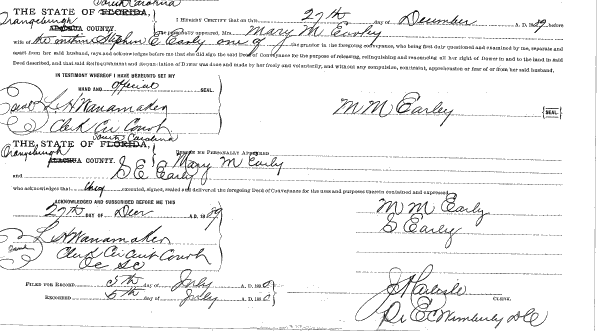 South Carolina
THE STATE OF FLORIDA,
Orangeburgh
ALACHUA COUNTY.
I HEREBY CERTIFY that on this 27th day of December A. D. 89, before
me personally appeared, Mrs Mary M Earley
wife of the within Stephen E Early one of the grantor in the foregoing conveyance, who being first duly questioned and examined by me, separate and
apart from her said husband, says and acknowledges before me that she did sign the said Deed of Conveyance for the purpose of releasing, relinquishing and renouncing all her right of Dower in and to the land in said
Deed described, and that said Relinquishment and Renunciation of Dower was done and made by her freely and voluntarily, and without any compulsion, constraint, apprehension or fear of or from her said husband,
IN TESTIMONY WHEREOF I HAVE HEREUNTO SET MY
HAND AND official SEAL.
Seal L H Wanamaker
Clerk Cir Court
M M Earley {SEAL.}
South Carolina
THE STATE OF FLORIDA,
Orangeburgh
ALACHUA COUNTY.
BEFORE ME PERSONALLY APPEARED
Mary M Early
and S E Early
who acknowledged that they executed, signed, sealed and delivered the foregoing Deed of Conveyance for the uses and purposes therein contained and expressed.
ACKNOWLEDGED AND SUBSCRIBED BEFORE ME THIS
27th DAY OF Decr A.D. 1889
M M Early
S Early
L H Wanamaker
Clerk Circuit Court
Oc SC
FILED FOR RECORD 5th day of July A. D. 18
RECORDED 5th day of July A. D. 18
CLERK.
E Wimberly DC